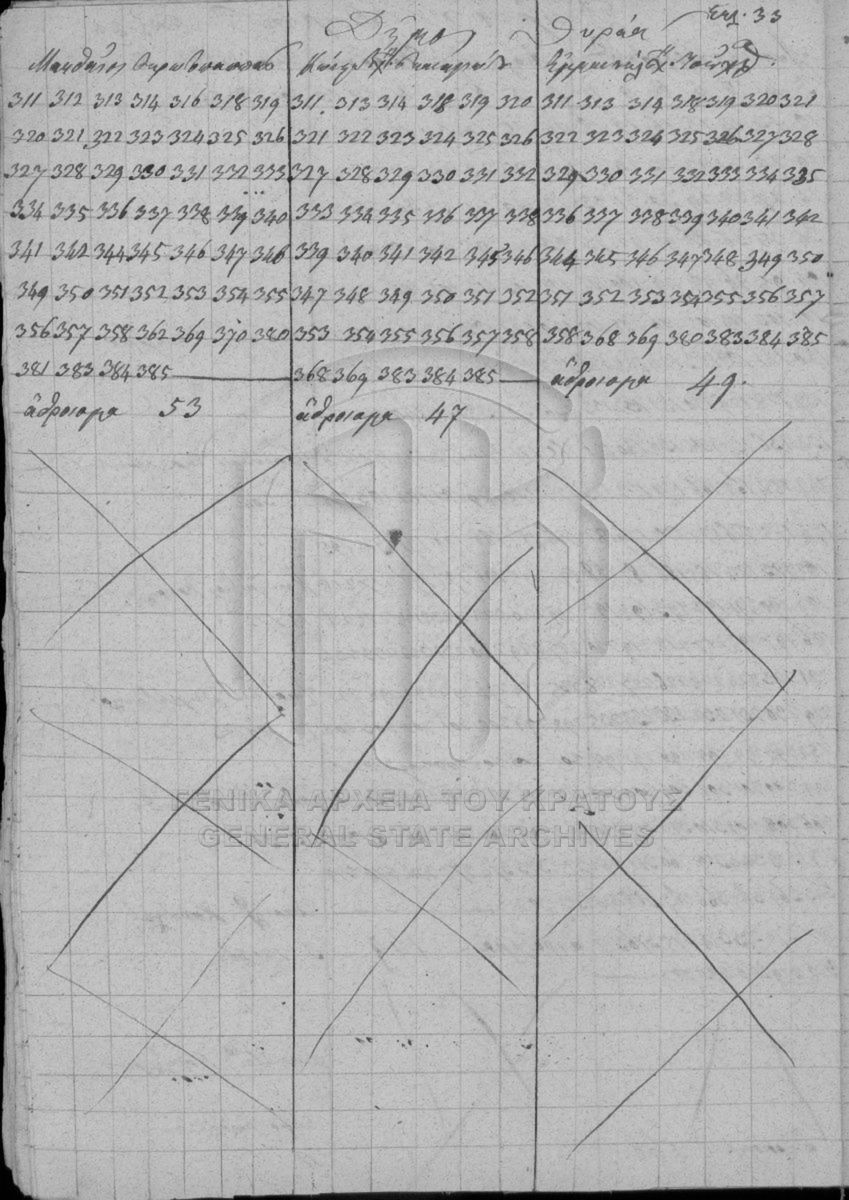 Σελ. 33
Δῆμος Θυρέας
311 312 313 314 316 318 319
320 321 322 323 324 325 326
327 328 329 330 331 332 333
334 335 336 337 338 339 340
341 342 344 345 346 347 348
349 350 351 352 353 354 355
356 357 358 362 369 370 380
381 383 384 385
ἄθροισμα 53
311 313 314 318 319 320
321 322 323 324 325 326
327 328 329 330 331 332
333 334 335 336 337 338
339 340 341 342 345 346
347 348 349 350 351 352
353 354 355 356 357 358
368 369 383 384 385
ἄθροισμα 47
311 313 314 318 319 320 321
322 323 324 325 326 327 328
329 330 331 332 333 334 335
336 337 338 339 340 341 342
344 345 346 347 348 349 350
351 352 353 354 355 356 357
358 368 369 380 383 384 385
ἄθροισμα 49.
ΓΕΝΙΚΑ ΑΡΧΕΙΑ ΤΟΥ ΚΡΑΤΟΥΣ
GENERAL STATE ARCHIVES